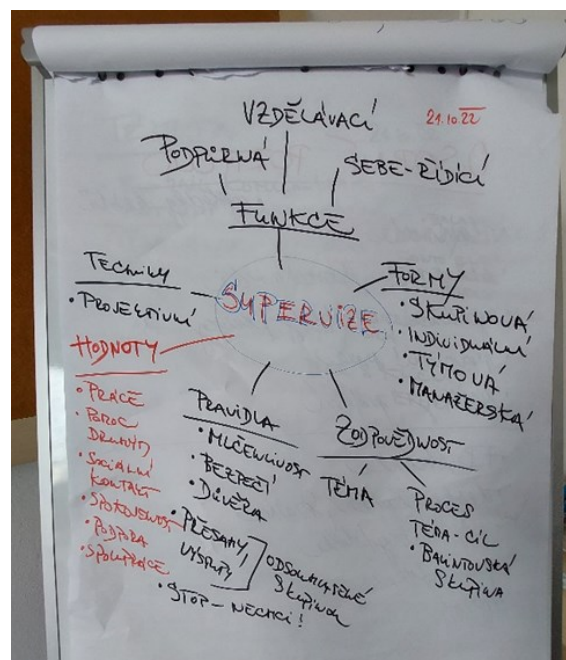 21.10.22
VZDĚLÁVACÍ
PODPŮRNÁ
SEBE-ŘÍDÍCÍ
FUNKCE
SUPERVIZE
TECHNIKY
• PROJEKTIVNÍ
FORMY
• SKUPINOVÁ
• INDIVIDUÁLNÍ
• TÝMOVÁ
• MANAŽERSKÁ
HODNOTY
• PRÁCE
• POMOC
DRUHÝM
• SOCIÁLNÍ
KONTAKT
• SPOKOJENOST
• PODPORA
• SPOLUPRÁCE
PRAVIDLA
• MLČENLIVOST
• BEZPEČÍ
• DŮVĚRA
• PŘESAHY,
VÝSTUPY
ODSOUHLASENÉ
SKUPINOU
• STOP - NECHCI!
ZODPOVĚDNOST
TÉMA
PROCES
TÉMA-CÍL
• BALINTOVSKÁ
SKUPINA